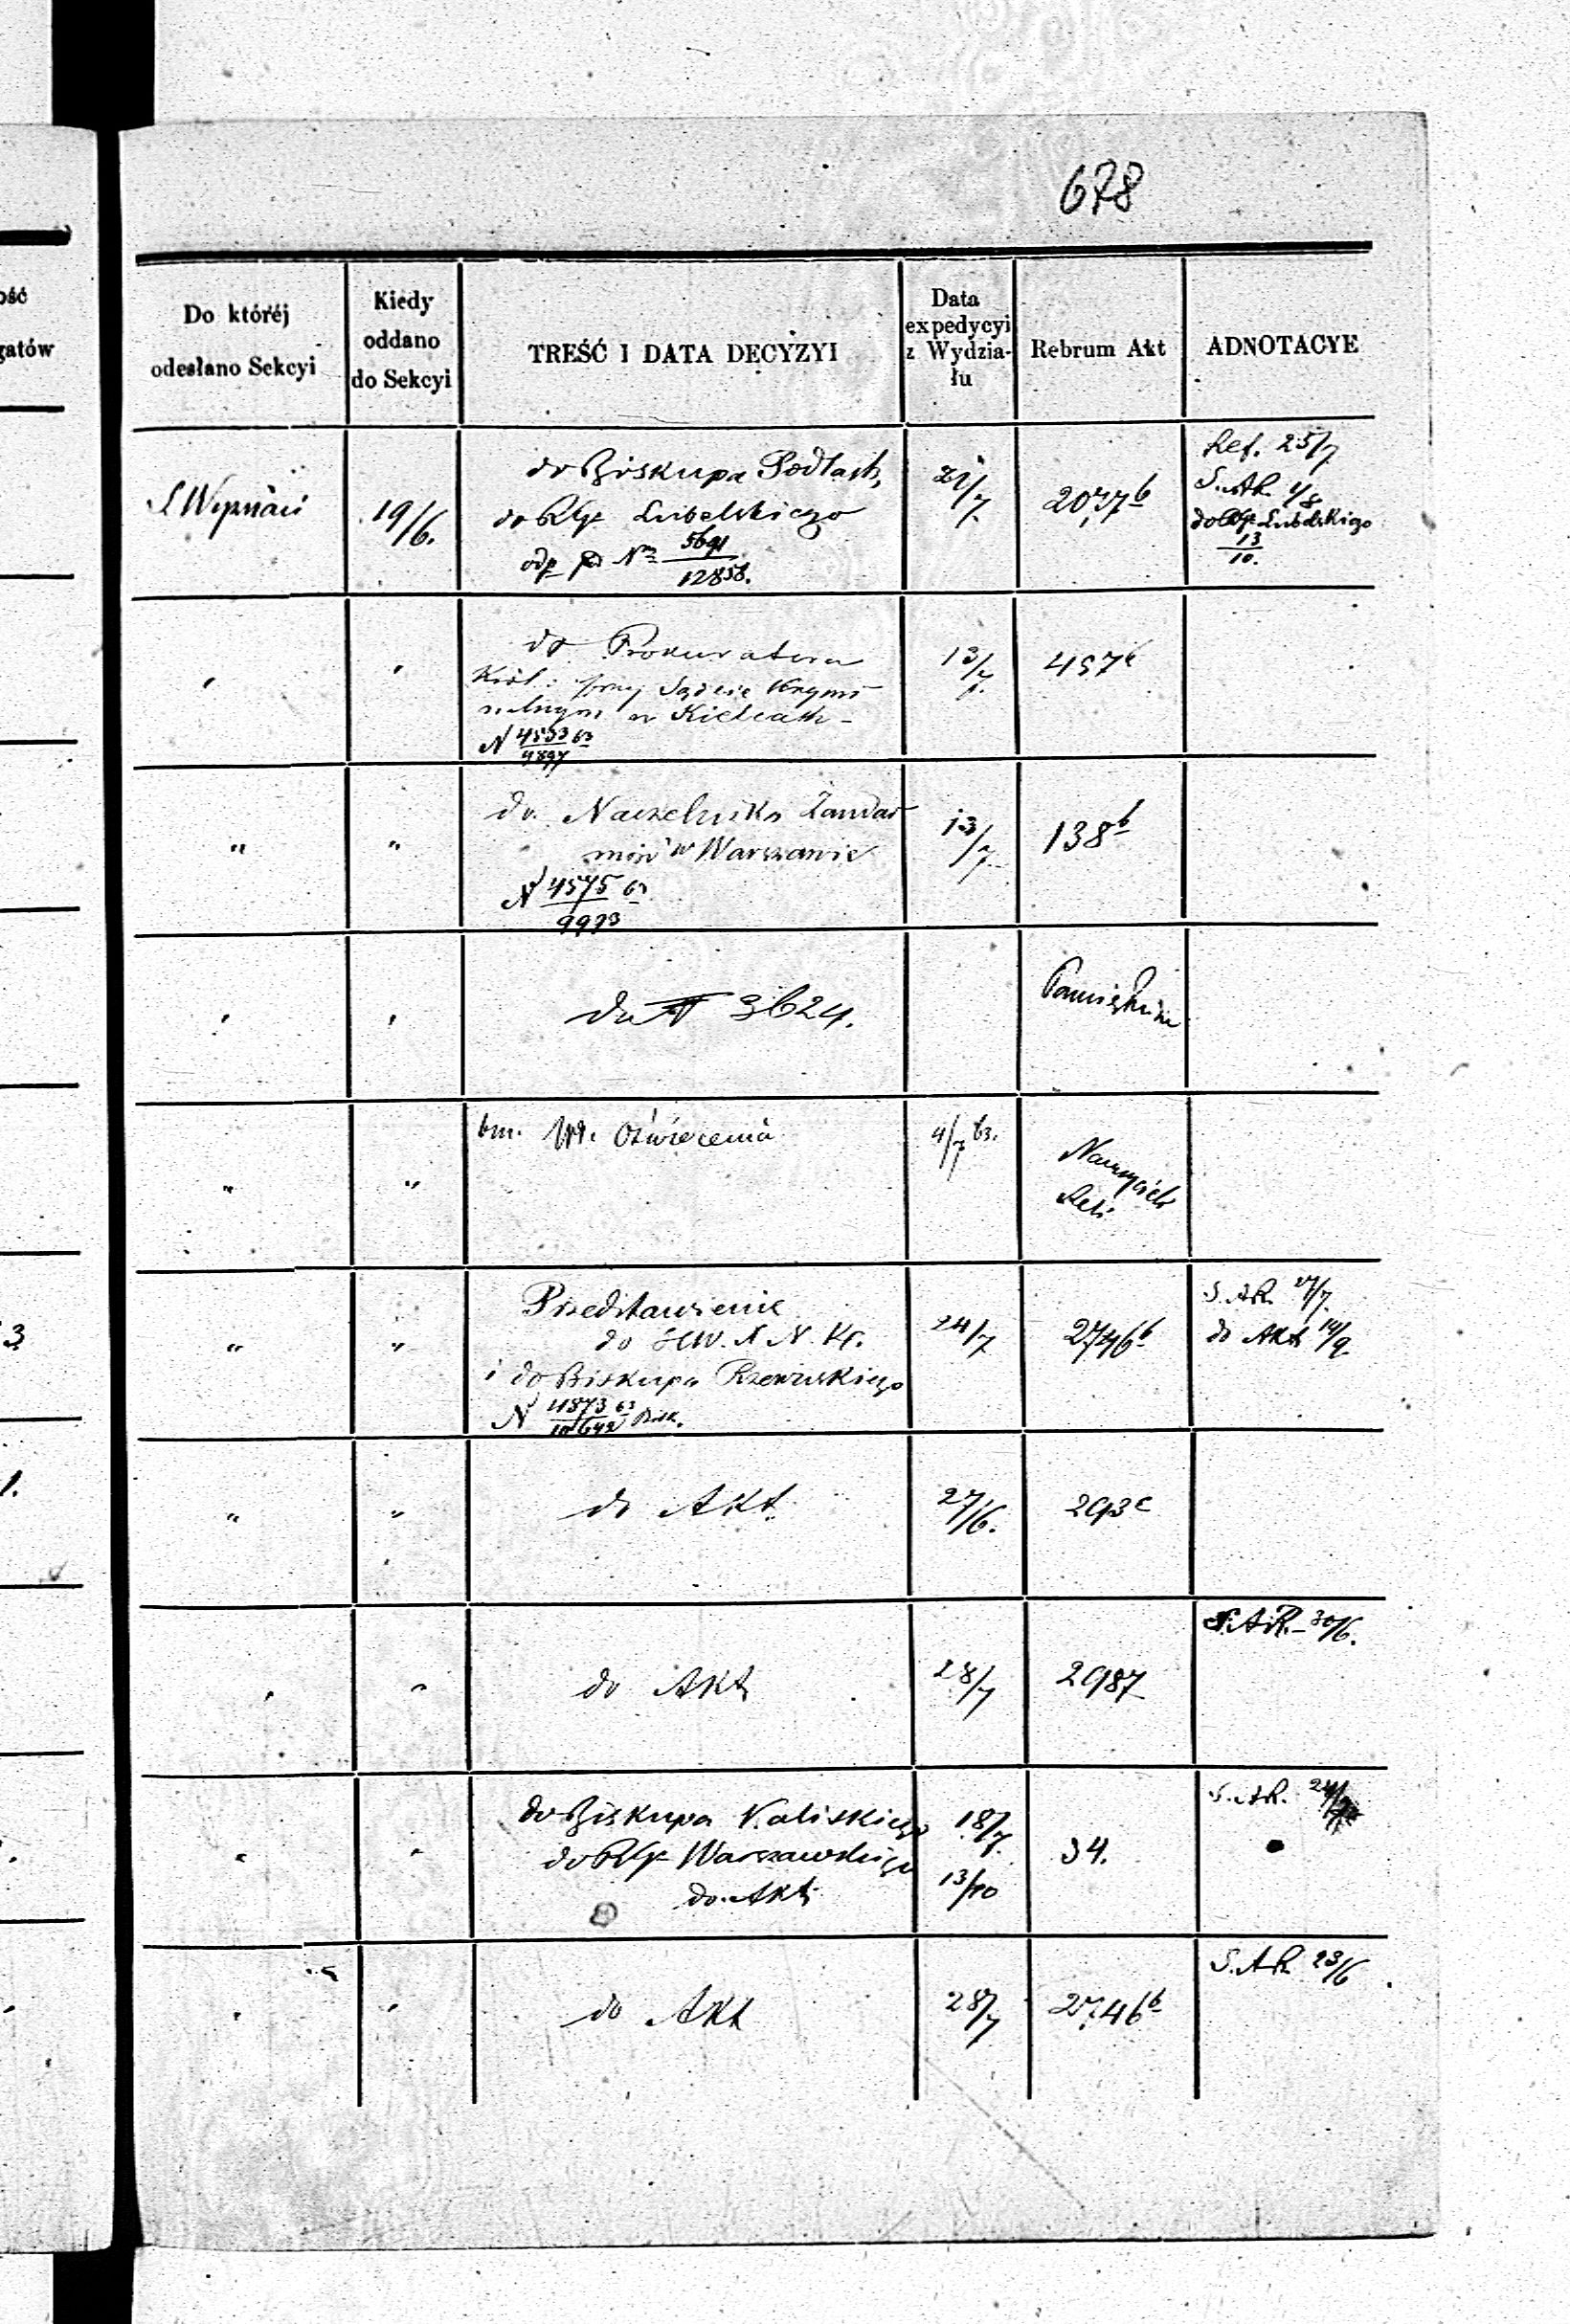 678
ość
gatów
Do któréj
odesłano Sekcyi
Kiedy
oddano
do Sekcyi
TREŚĆ I DATA DECYZYI
Data
expedycyi
z Wydzia-
łu
Rebrum Akt
ADNOTACYE
S Wyznań
19/6.
do Biskupa Podlask,
do Lubelskiego
odp pod Nm 5691
12858.
21/7.
2077 b
Ref. 25/7
S. AR. 1/8
do Lubelskiego
13
10.
do Prokuratora
Król: przy Sądzie Krymi
nalnym w Kielcach -
N 4533 63
4897
13/7.
457
"
"
do Naczelnika Żandar
mów w Warszawie
N 4575 63
9993
13/7.
138 b
do N 3624.
"
"
bm. Wł. Oświecenia
4/7 63.
"
"
Przedstawienie
do N. N. Kr.
i do Biskupa Rzewuskiego
N 4873 63
10642
24/7
2746 b
S. AR. 27/7.
do Akt 14/9.
3
"
"
do Akt.
27/6.
293 c
1.
do Akt
28/7
2987
S. A.R. - 30/6.
do Biskupa Kaliskiego
do Warszawskiego
do Akt
18/7.
13/10
34.
S. AR. 24/
do Akt
28/7
2746 b
S. AR 23/6